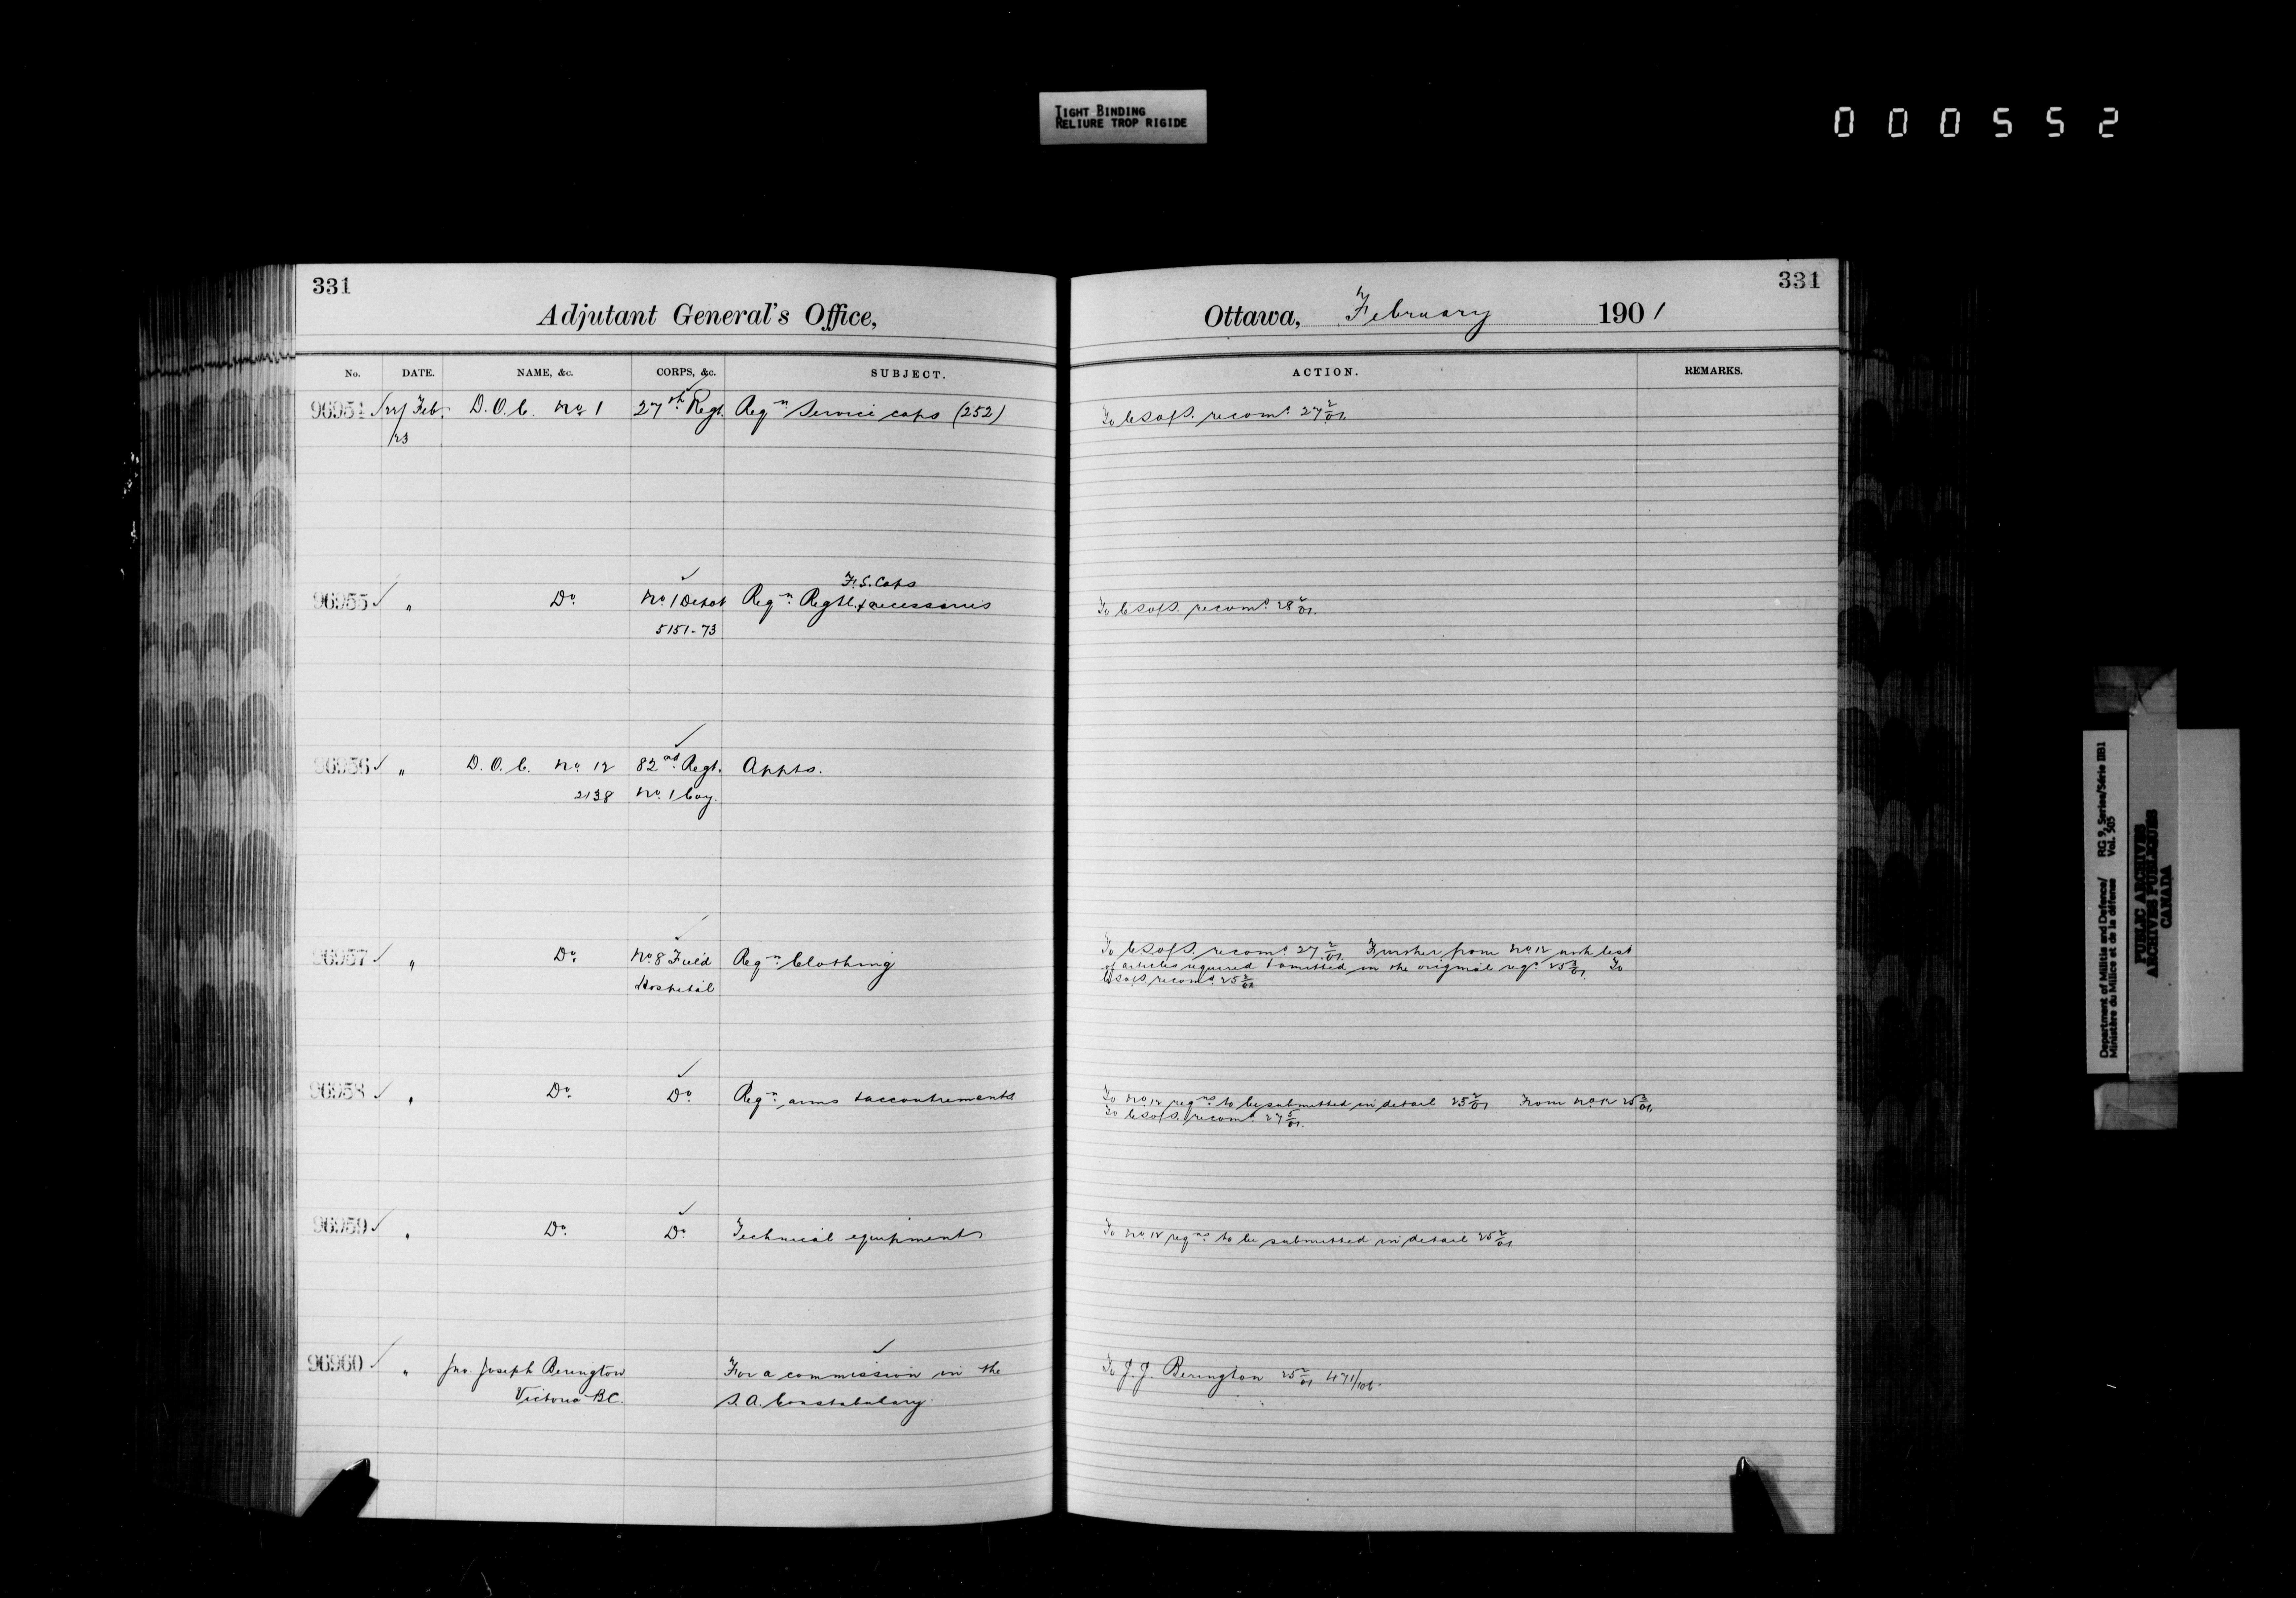 TIGHT BINDING
RELIURE TROP RIGIDE
000552
331
Adjutant General's Office,
No. DATE. NAME, &c. CORPS, &c. SUBJECT.
96954 22/ Feb. D.O.C. No 1 27th Regt. Reqn Service caps (252)
/23
F.S. Caps
96955 " Do. No 1 Depot Reqn. Regtl. & necessaries
5151-73
96956 " D.O.C. No 12 82nd Regt. Appts.
2138 No. 1 Coy.
96957 " Do. No 8 Field Reqn Clothing
Hospital
96958 " Do. Do. Reqn. arms & accoutrements
96959 " Do. Do. Technical equipment
96960 " Jno. Joseph Berington For a commission in the
Victoria B.C. S.A. Constabulary.
331
Ottawa, February 1901
ACTION. REMARKS.
To C.S. of S. recomd. 27 2/01.
To C.S. of S. recomd. 28 2/01.
To C.S. of S. recomd. 27 2/01. Further from No 12 with list
of articles required & omitted in the original reqn. 25 3/01. To
C.S. of S. recomd. 25
To No 12 reqns. to be submitted in detail 25 2/01 From No 12 25 3/01.
To C.S. of S. recomd. 27 5/01.
To No 12 reqns. to be submitted in detail 25 2/01
To J.J. Berington 25 2/01 471/106.
Department of Militia and Defence/ RG 9, Series/Série IIB1
Ministère du Milice et de la défense Vol. 505
PUBLIC ARCHIVES
ARCHIVES PUBLIQUES
CANADA